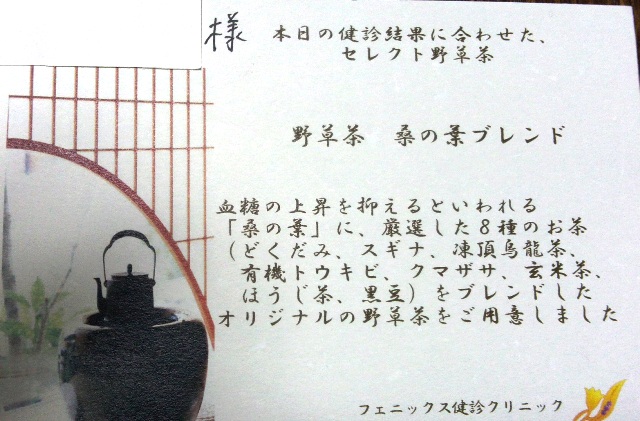 様
本日の健診結果に合わせた、
セレクト野草茶
野草茶　桑の葉ブレンド
血糖の上昇を抑えるといわれる
「桑の葉」に、厳選した８種のお茶
（どくだみ、スギナ、凍頂烏龍茶、
有機トウキビ、クマザサ、玄米茶、
ほうじ茶、黒豆）をブレンドした
オリジナルの野草茶をご用意しました
フェニックス健診クリニック